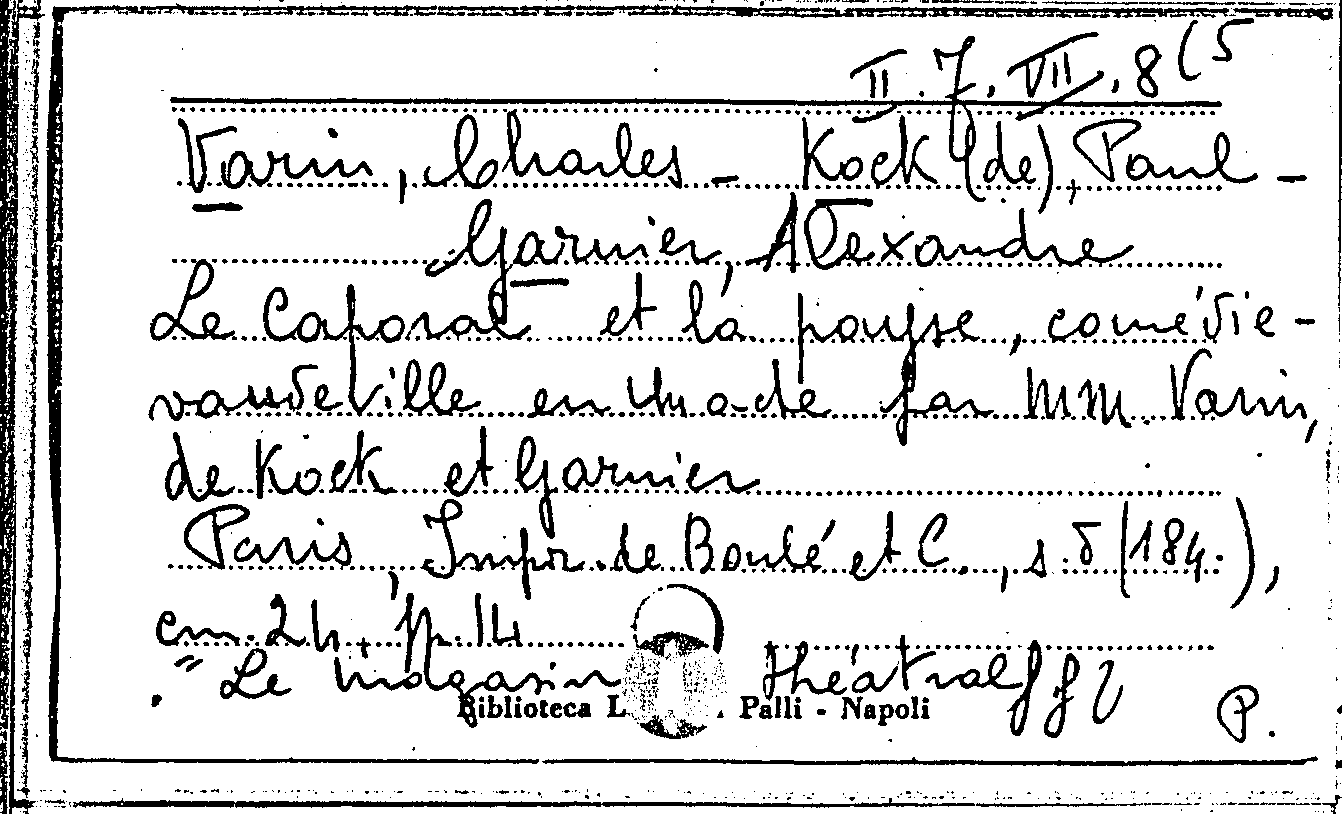 II. 7. VII. 8 (5
Varin, Charles - Kock (de), Paul -
Garnier, Alexandre
Le Caporal et la payse, comédie-
vaudeville en un acte par MM. Varin,
de Kock et Garnier
Paris, Impr. de Boulé et C., s.d (184.),
cm. 24, p. 14
. "Le magasin théâtral
Biblioteca L Palli - Napoli
P.